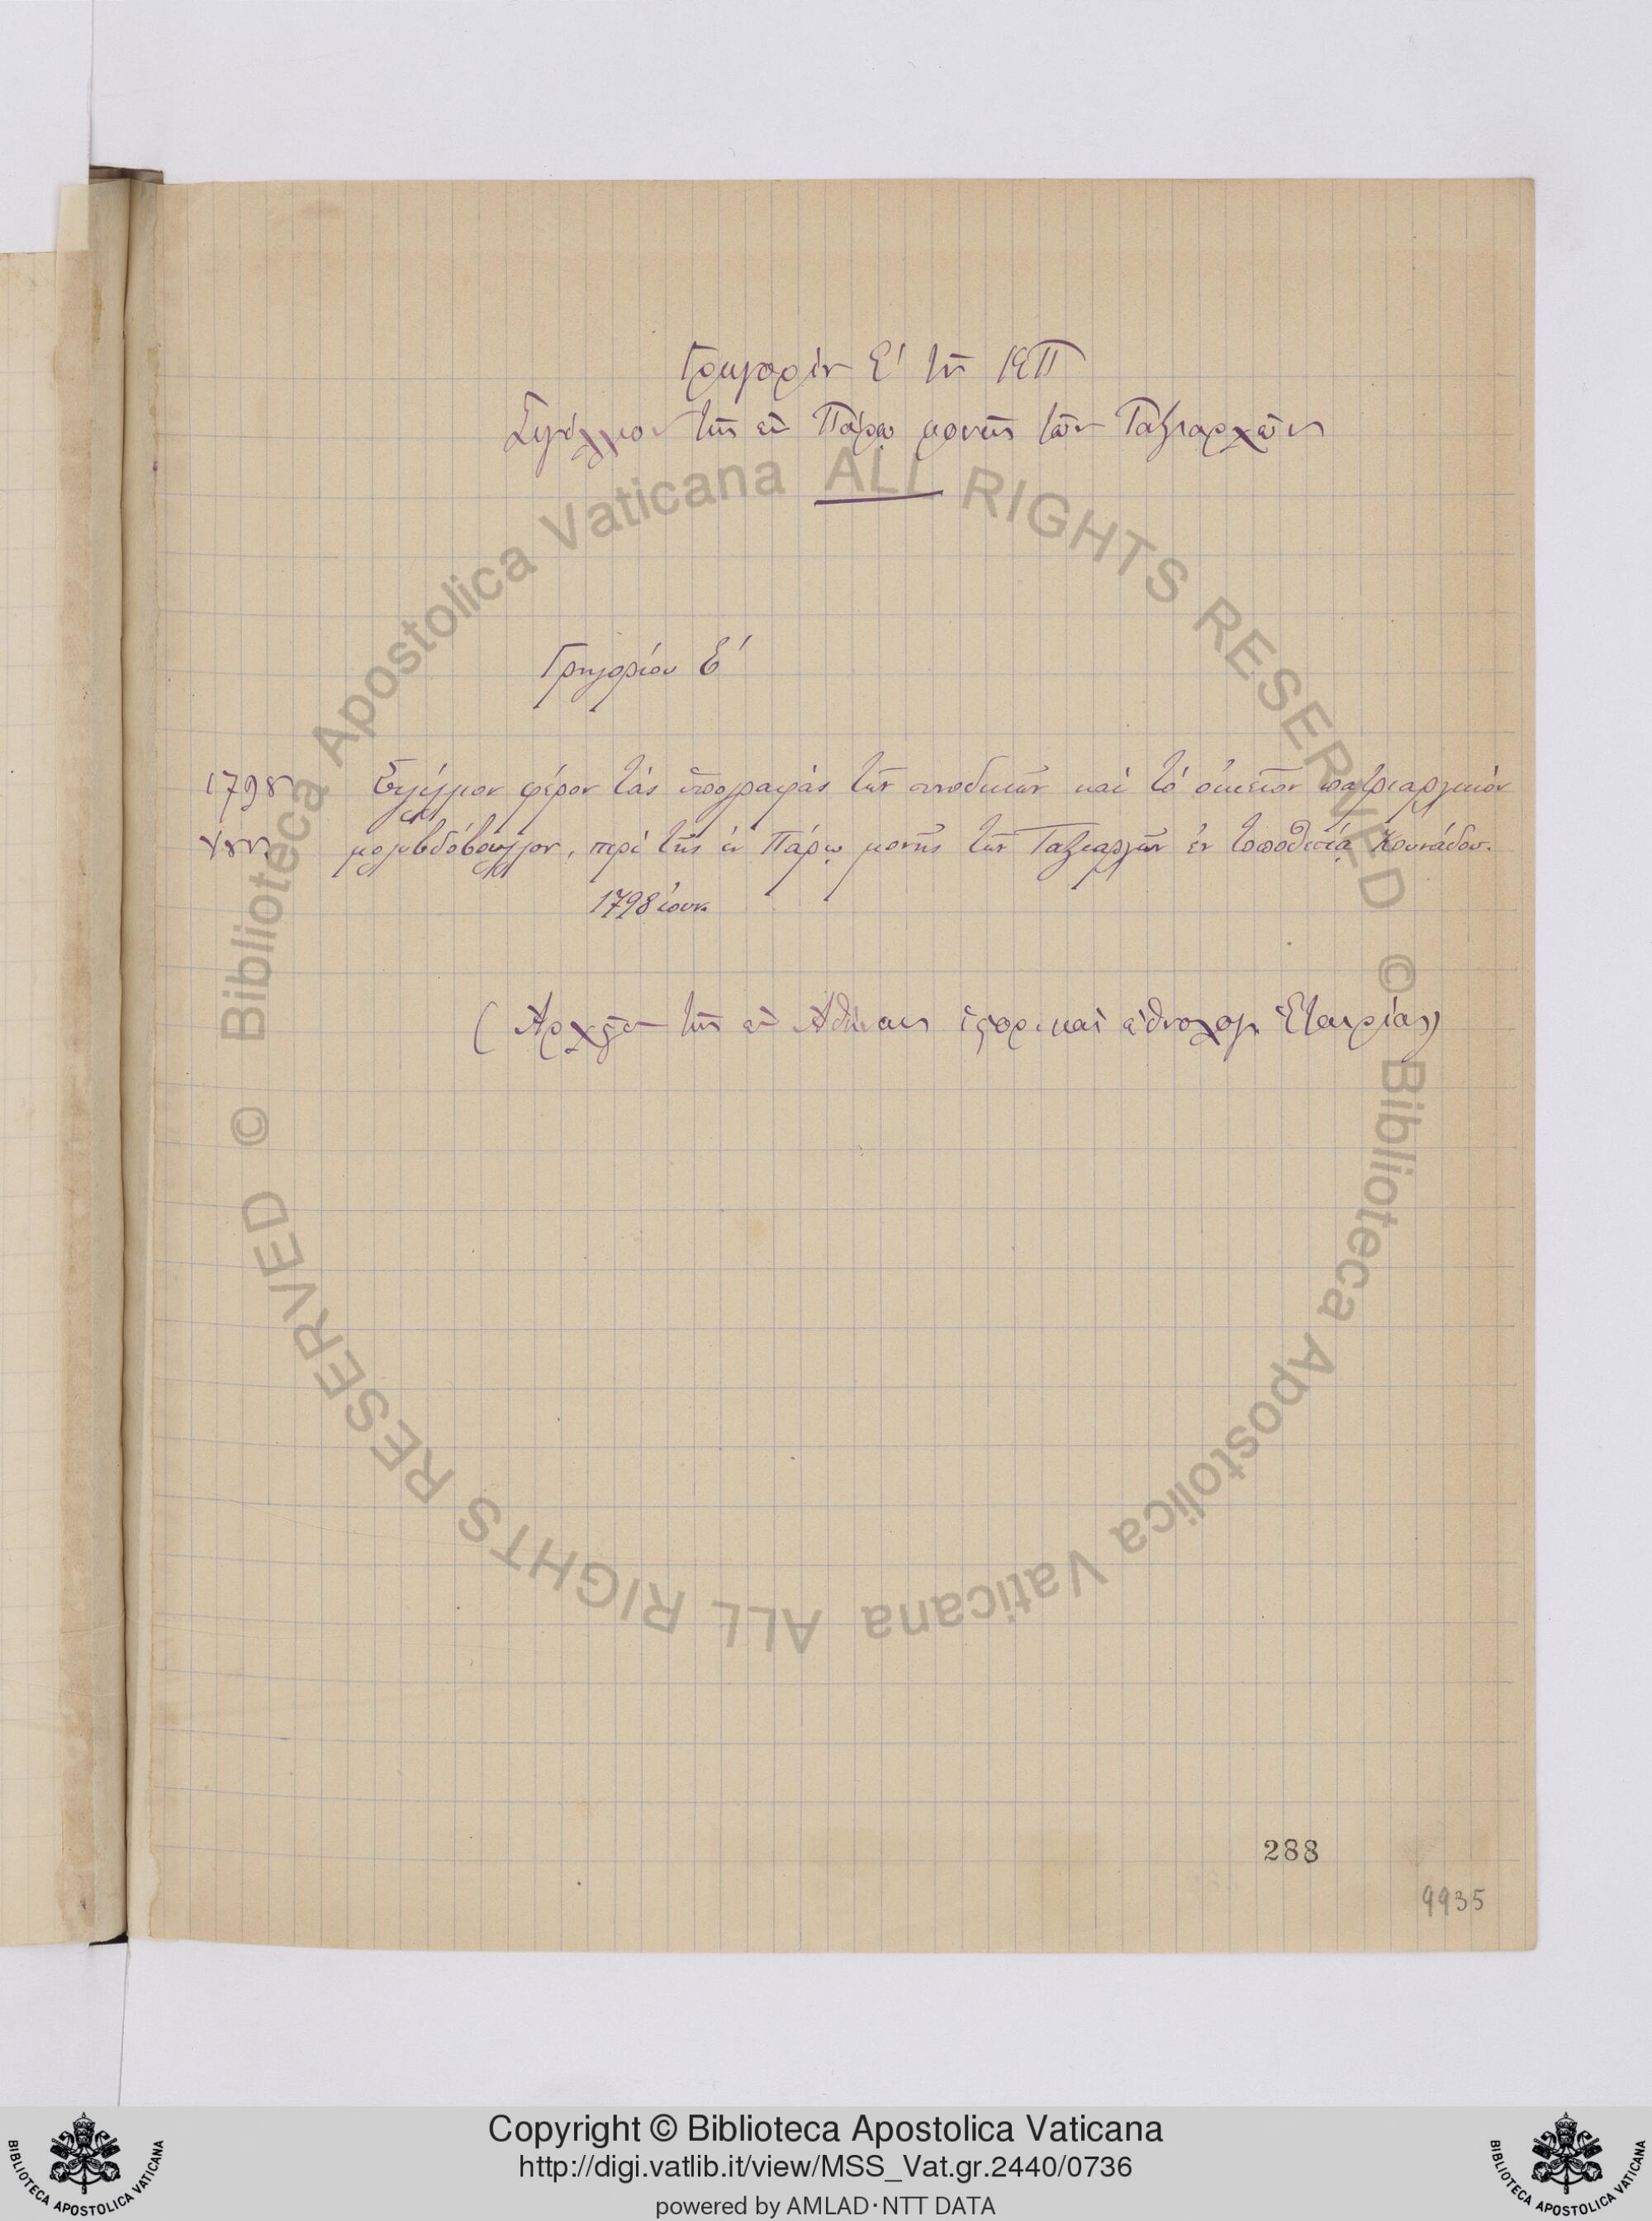 Γρηγορίου Ε΄ τοῦ ΚΠ
Σιγίλλιον τῆς ἐν Πάρῳ μονῆς τῶν Ταξιαρχῶν
Γρηγορίου Ε΄
1798 Σιγίλλιον φέρον τὰς ὑπογραφὰς τῶν συνοδικῶν καὶ τὸ οἰκεῖον πατριαρχικὸν
μολυβδόβουλλον, περὶ τῆς ἐν Πάρῳ μονῆς τῶν Ταξιαρχῶν ἐν τοποθεσίᾳ Κουνάδου.
1798 ἰουν.
(Ἀρχεῖον τῆς ἐν Ἀθήναις ἱστορ. καὶ ἐθνολογ. Ἑταιρίας)
288
9935
Biblioteca Apostolica Vaticana ALL RIGHTS RESERVED ©
Biblioteca Apostolica Vaticana ALL RIGHTS RESERVED ©
Copyright © Biblioteca Apostolica Vaticana
http://digi.vatlib.it/view/MSS_Vat.gr.2440/0736
powered by AMLAD·NTT DATA
BIBLIOTECA APOSTOLICA VATICANA
BIBLIOTECA APOSTOLICA VATICANA